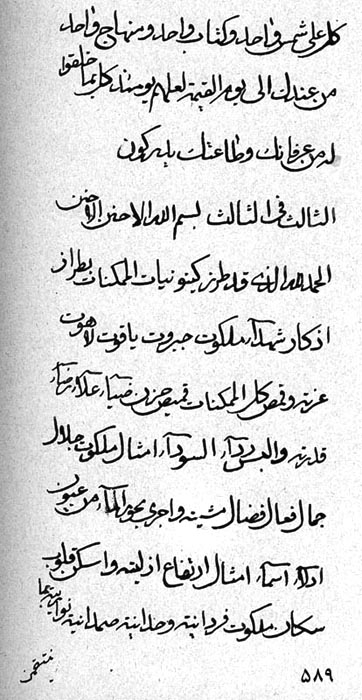 کل علی شمس واحد و کتاب واحد و منهاج واحد
من عندك الی یوم القیمة لعلهم یومئذ کل بما خلقوا
له من عرفانك و طاعتك یدرکون
الثالث فی الثالث بسم الله الاحزن الاحزن
الحمد لله الذی قد طرز کینونیات الممکنات بطراز
اذکار ملکوت جبروت یاقوت لاهوت
عزته و قمص کل الممکنات قمیص حزن ضیاء علاء
قدرته و السوداء امثال ملکوت جلال
جمال فعال فضال مشیته و اجری بحور الماء من عیون
ادلاء اسماء امثال ارتفاع ازلیته و اسکن قلوب
سکان ملکوت فردانیته وحدانیته صمدانیته
۵۸۹